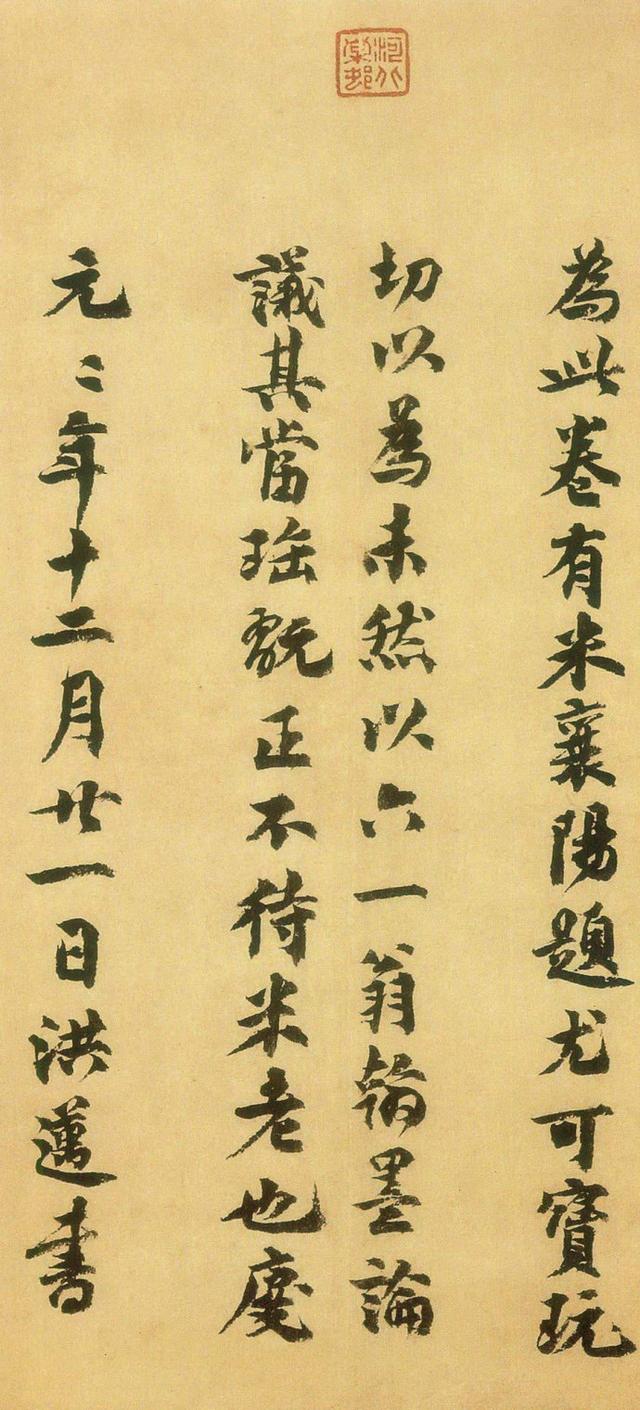 河北棠邨
為此卷有米襄陽題尤可寶玩
切以為未然以六一翁翰墨論
議其當珤翫正不待米老也慶
元〻年十二月廿一日洪邁書